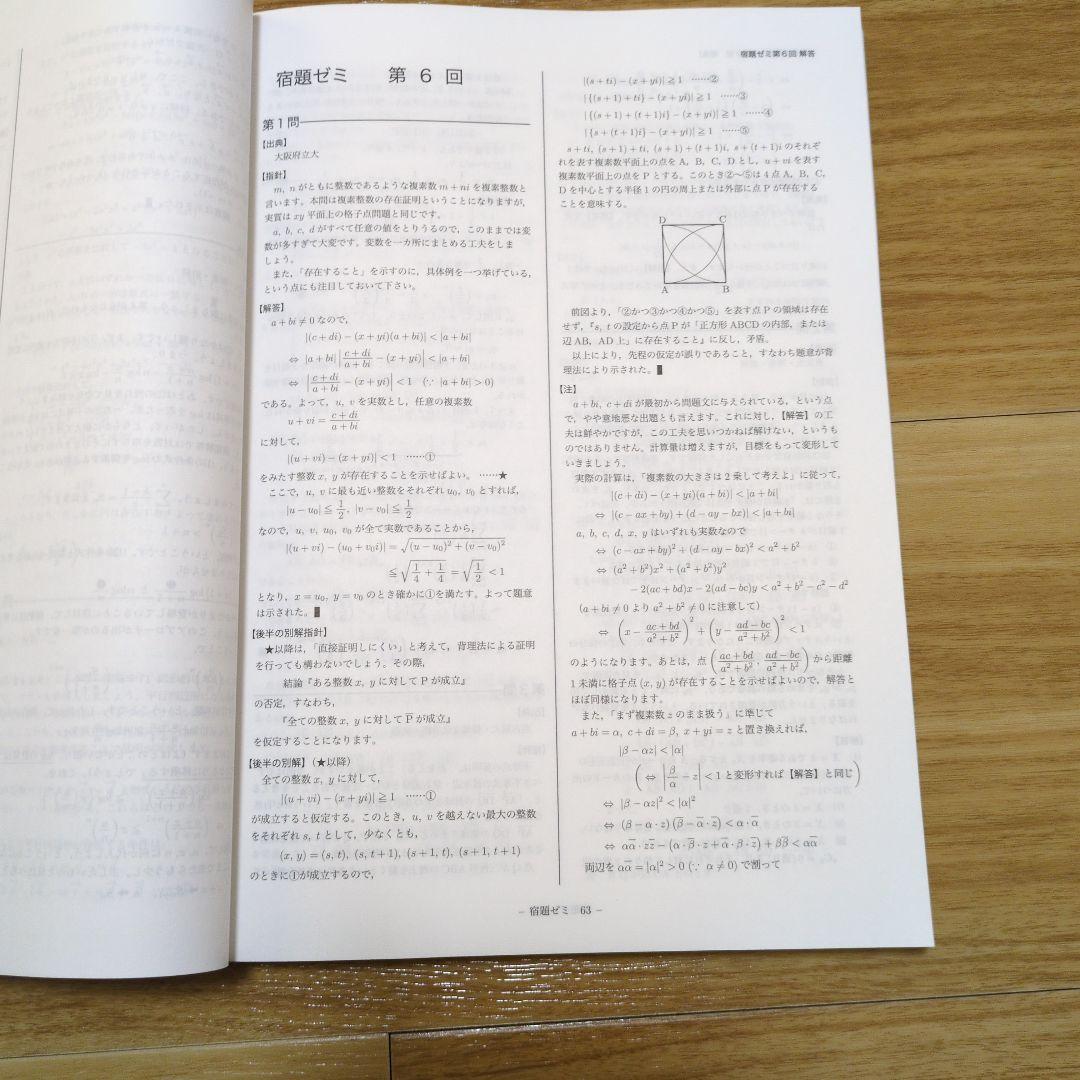 宿題ゼミ 第 6 回
第1問
【出典】
大阪府立大
【指針】
m, n がともに整数であるような複素数 m + ni を複素整数と
言います。本問は複素整数の存在証明ということになりますが,
実質は xy 平面上の格子点問題と同じです。
a, b, c, d がすべて任意の値をとりうるので, このままでは変
数が多すぎて大変です。変数を一カ所にまとめる工夫をしま
しょう。
また,「存在すること」を示すのに, 具体例を一つ挙げている,
という点にも注目しておいて下さい。
【解答】
a + bi ≠ 0 なので,
|(c + di) − (x + yi)(a + bi)| < |a + bi|
⇔ |a + bi| |(c + di)/(a + bi) − (x + yi)| < |a + bi|
⇔ |(c + di)/(a + bi) − (x + yi)| < 1 (∵ |a + bi| > 0)
である。よって, u, v を実数とし, 任意の複素数
u + vi = (c + di)/(a + bi)
に対して,
|(u + vi) − (x + yi)| < 1 ……①
をみたす整数 x, y が存在することを示せばよい。 ……★
ここで, u, v に最も近い整数をそれぞれ u₀, v₀ とすれば,
|u − u₀| ≦ 1/2, |v − v₀| ≦ 1/2
なので, u, v, u₀, v₀ が全て実数であることから,
|(u + vi) − (u₀ + v₀i)| = √((u − u₀)² + (v − v₀)²)
≦ √(1/4 + 1/4) = √(1/2) < 1
となり, x = u₀, y = v₀ のとき確かに①を満たす。よって題意
は示された。
【後半の別解指針】
★以降は,「直接証明しにくい」と考えて, 背理法による証明
を行っても構わないでしょう。その際,
結論『ある整数 x, y に対して P が成立』
の否定, すなわち,
『全ての整数 x, y に対して P̅ が成立』
を仮定することになります。
【後半の別解】(★以降)
全ての整数 x, y に対して,
|(u + vi) − (x + yi)| ≧ 1 ……①
が成立すると仮定する。このとき, u, v を越えない最大の整数
をそれぞれ s, t として, 少なくとも,
(x, y) = (s, t), (s, t + 1), (s + 1, t), (s + 1, t + 1)
のときに①が成立するので,
宿題ゼミ第6回 解答
|(s + ti) − (x + yi)| ≧ 1 ……②
|{(s + 1) + ti} − (x + yi)| ≧ 1 ……③
|{(s + 1) + (t + 1)i} − (x + yi)| ≧ 1 ……④
|{s + (t + 1)i} − (x + yi)| ≧ 1 ……⑤
s + ti, (s + 1) + ti, (s + 1) + (t + 1)i, s + (t + 1)i のそれぞ
れを表す複素数平面上の点を A, B, C, D とし, u + vi を表す
複素数平面上の点を P とする。このとき②〜⑤は4点 A, B, C,
D を中心とする半径1の円の周上または外部に点 P が存在する
ことを意味する。
D C
A B
前図より,「②かつ③かつ④かつ⑤」を表す点 P の領域は存在
せず,『s, t の設定から点 P が「正方形 ABCD の内部, または
辺 AB, AD 上」に存在すること』に反し, 矛盾。
以上により, 先程の仮定が誤りであること, すなわち題意が背
理法により示された。
【注】
a + bi, c + di が最初から問題文に与えられている, という点
で, やや意地悪な出題とも言えます。これに対し,【解答】の工
夫は鮮やかですが, この工夫を思いつかねば解けない, というも
のではありません。計算量は増えますが, 目標をもって変形して
いきましょう。
実際の計算は,「複素数の大きさは2乗して考えよ」に従って,
|(c + di) − (x + yi)(a + bi)| < |a + bi|
⇔ |(c − ax + by) + (d − ay − bx)i| < |a + bi|
a, b, c, d, x, y はいずれも実数なので
⇔ (c − ax + by)² + (d − ay − bx)² < a² + b²
⇔ (a² + b²)x² + (a² + b²)y²
− 2(ac + bd)x − 2(ad − bc)y < a² + b² − c² − d²
(a + bi ≠ 0 より a² + b² ≠ 0 に注意して)
⇔ (x − (ac + bd)/(a² + b²))² + (y − (ad − bc)/(a² + b²))² < 1
のようになります。あとは, 点 ((ac + bd)/(a² + b²), (ad − bc)/(a² + b²)) から距離
1未満に格子点 (x, y) が存在することを示せばよいので, 解答と
ほぼ同様になります。
また,「まず複素数 z のまま扱う」に準じて
a + bi = α, c + di = β, x + yi = z と置き換えれば,
|β − αz| < |α|
(⇔ |β/α − z| < 1 と変形すれば【解答】と同じ)
⇔ |β − αz|² < |α|²
⇔ (β − α・z)(β̅ − α̅・z̅) < α・α̅
⇔ αα̅・zz̅ − (α・β̅・z + α̅・β・z̅) + ββ̅ < αα̅
両辺を αα̅ = |α|² > 0 (∵ α ≠ 0) で割って
− 宿題ゼミ 63 −